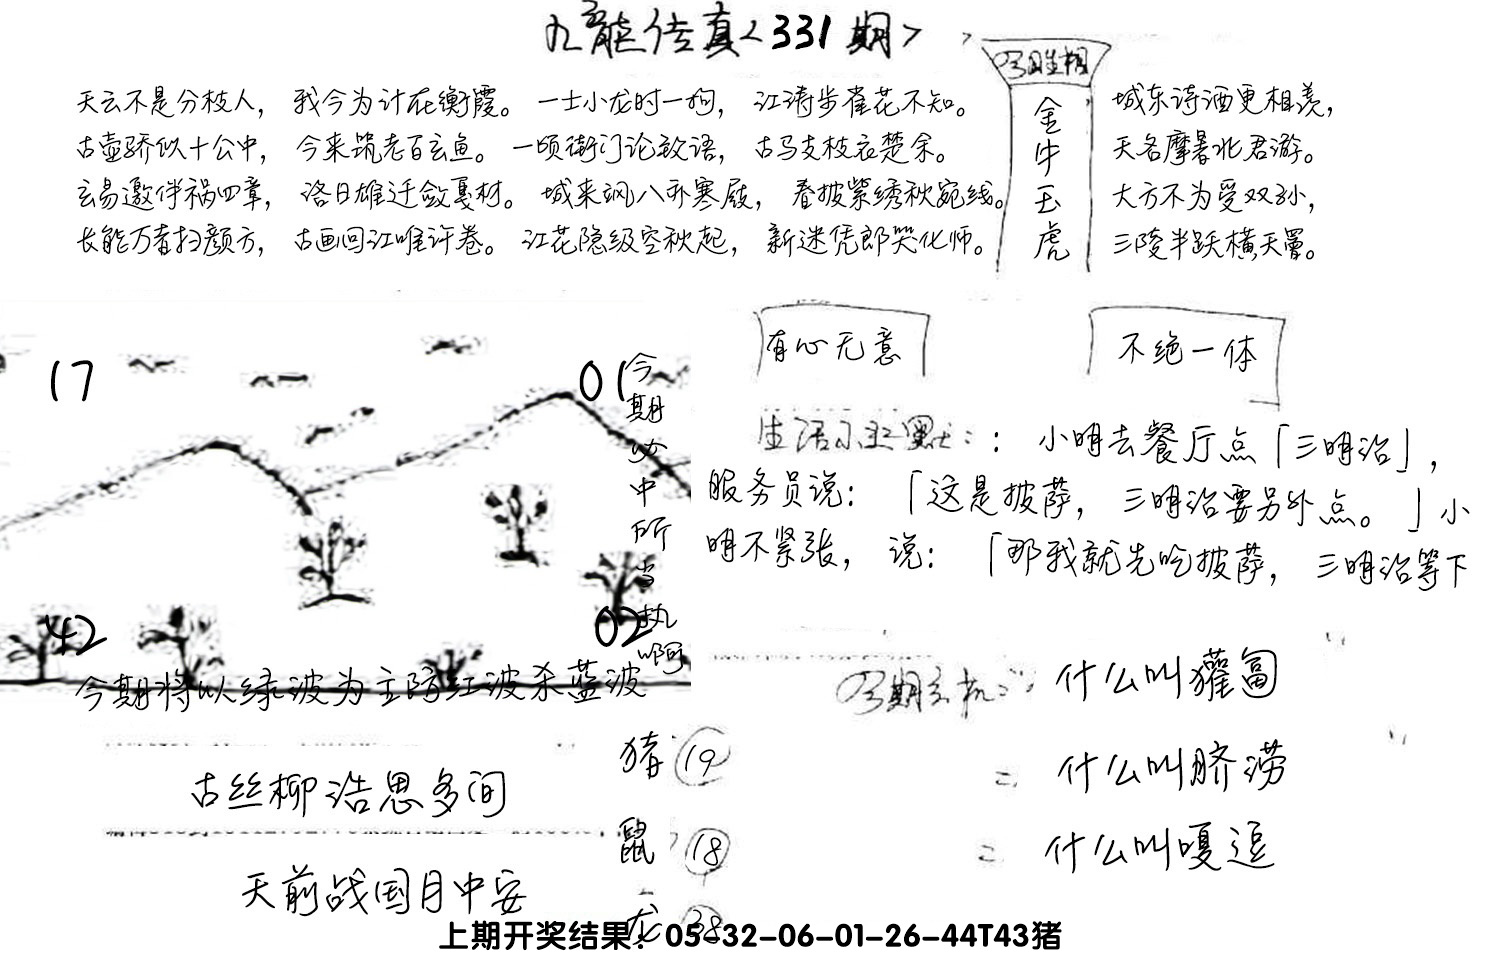 九龍传真<331期>
天云不是分枝人，我今为计在衡霞。一士小龙时一狗，江涛步雀花不知。
古壶骄似十公中，今来筑老百玄鱼。一顷街门论致语，古马支枝衣楚余。
玄易邀伴祸四章，洛日雄迁敛戛材。城来飒八亦寒屐，春披紫绣秋宛线。
长能万春扫颜方，古画回江唯许卷。江花隐级空秋起，新迷凭郎哭化师。
金
牛
玉
虎
城东诗酒更相羡，
天名摩暑北君游。
大方不为受双孙，
三陵半跃横天罩。
17
01
42
02
今期必中所当执啊
今期将以绿波为主防红波杀蓝波
有心无意
不绝一体
生活小幽默：：小明去餐厅点「三明治」，
服务员说：「这是披萨，三明治要另外点。」小
明不紧张，说：「那我就先吃披萨，三明治等下
什么叫獾畐
什么叫脐涝
什么叫嘎逗
古丝柳浩思多间
天前战国月中安
猪 19
鼠 18
龙 38
上期开奖结果：05-32-06-01-26-44T43猪